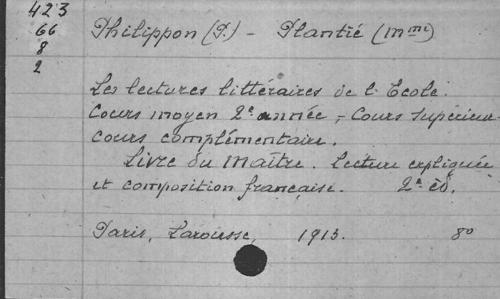 423
66
8
2
Philippon (P.) - Plantié (Mme)
Les lectures littéraires de l'Ecole.
Cours moyen 2e année, - Cours supérieur
cours complémentaire.
Livre du Maître. Lecture expliquée
et composition française. 2e éd.
Paris, Larousse, 1913. 8o